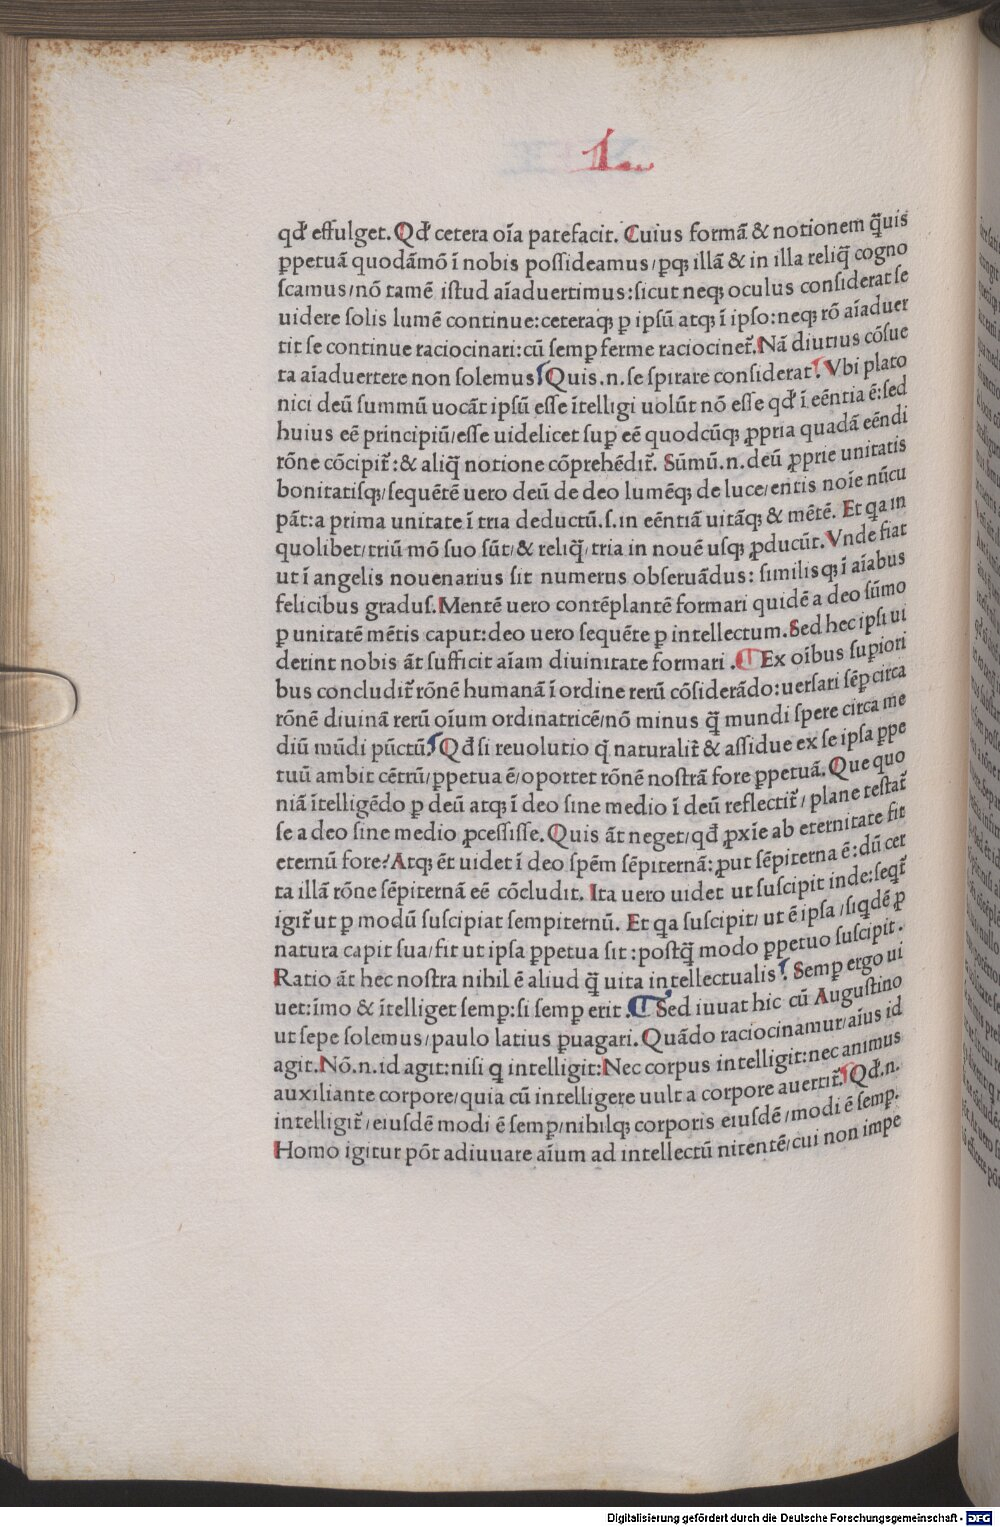 L
qđ effulget. Qđ cetera oīa patefacit. Cuius formā & notionem q̄uis
ꝑpetuā quodāmō ī nobis possideamus/ꝑqꝫ illā & in illa reliq̄ cogno
scamus/nō tamē istud aīaduertimus:sicut neqꝫ oculus considerat se
uidere solis lumē continue:ceteraqꝫ ꝑ ipsū atqꝫ ī ipso:neqꝫ rō aīaduer
tit se continue raciocinari:cū semꝑ ferme raciocinet̄. Nā diutius cōsue
ta aīaduertere non solemus Quis.n.se spirare considerat. Vbi plato
nici deū summū uocāt ipsū esse ītelligi uolūt nō esse qđ ī eēntia ē:sed
huius eē principiū/esse uidelicet suꝑ eē quodcūqꝫ ꝓpria quadā eēndi
rōne cōcipit̄:& aliq̄ notione cōprehēdit̄. Sūmū.n.deū ꝓprie unitatis
bonitatisqꝫ/sequētē uero deū de deo lumēqꝫ de luce/entis noīe nūcu
pāt:a prima unitate ī tria deductū.s.in eēntiā uitāqꝫ & mētē. Et qa in
quolibet/triū mō suo sūt/& reliq̄/tria in nouē usqꝫ ꝓducūt. Vnde fiat
ut ī angelis nouenarius sit numerus obseruādus: similisqꝫ ī aīabus
felicibus gradus. Mentē uero contēplantē formari quidē a deo sūmo
ꝑ unitatē mētis caput:deo uero sequēte ꝑ intellectum. Sed hec ipsi ui
derint nobis āt sufficit aīam diuinitate formari . Ex oībus suꝑiori
bus concludit̄ rōnē humanā ī ordine rerū cōsiderādo:uersari sēꝑ circa
rōnē diuinā rerū oīum ordinatricē/nō minus q̄ mundi spere circa me
diū mūdi pūctū Qđ si reuolutio q̄ naturalit̄ & assidue ex se ipsa ꝑpe
tuū ambit cētrū/ꝑpetua ē/oportet rōnē nostrā fore ꝑpetuā. Que quo
niā ītelligēdo ꝑ deū atqꝫ ī deo sine medio ī deū reflectit̄/ plane testat̄
se a deo sine medio ꝓcessisse. Quis āt neget/qđ ꝓxīe ab eternitate fit
eternū fore? Atqꝫ ēt uidet ī deo spēm sēpiternā: ꝓut sēpiterna ē:dū cer
ta illā rōne sēpiternā eē cōcludit. Ita uero uidet ut suscipit inde:seqt̄
igit̄ ut ꝑ modū suscipiat sempiternū. Et qa suscipit/ ut ē ipsa /siqdē ꝑ
natura capit sua/fit ut ipsa ꝑpetua sit :postq̄ modo ꝑpetuo suscipit.
Ratio āt hec nostra nihil ē aliud q̄ uita intellectualis . Semꝑ ergo ui
uet:īmo & ītelliget semꝑ:si semꝑ erit . Sed iuuat hic cū Augustino
ut sepe solemus/paulo latius ꝑuagari. Quādo raciocinamur/aīus id
agit. Nō.n.id agit:nisi q intelligit: Nec corpus intelligit:nec animus
auxiliante corpore/quia cū intelligere uult a corpore auertit̄. Qđ.n.
intelligit̄/eiusdē modi ē semꝑ/nihilqꝫ corporis eiusdē/modi ē semꝑ.
Homo igitur pōt adiuuare aīum ad intellectū nitentē/cui non impe
Digitalisierung gefördert durch die Deutsche Forschungsgemeinschaft - DFG